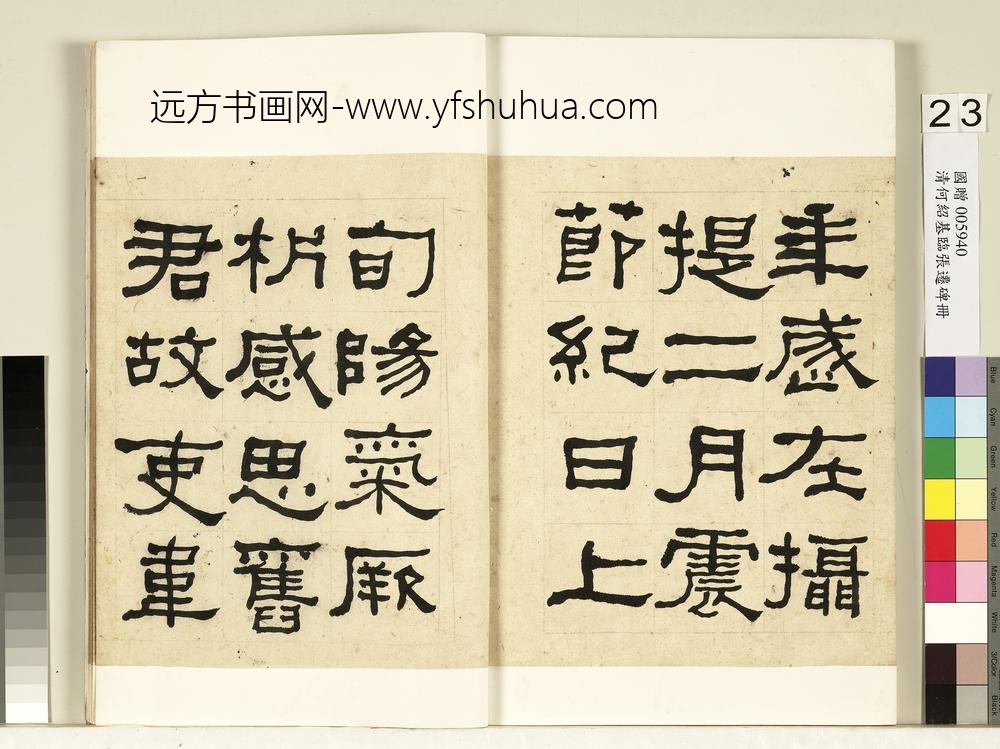 远方书画网-www.yfshuhua.com
年歲在攝
提二月震
節紀日上
旬陽氣厥
析感思舊
君故吏韋
23
國贈 005940
清何紹基臨張遷碑冊
Blue
Cyan
Green
Yellow
Red
Magenta
White
3/Color
Black